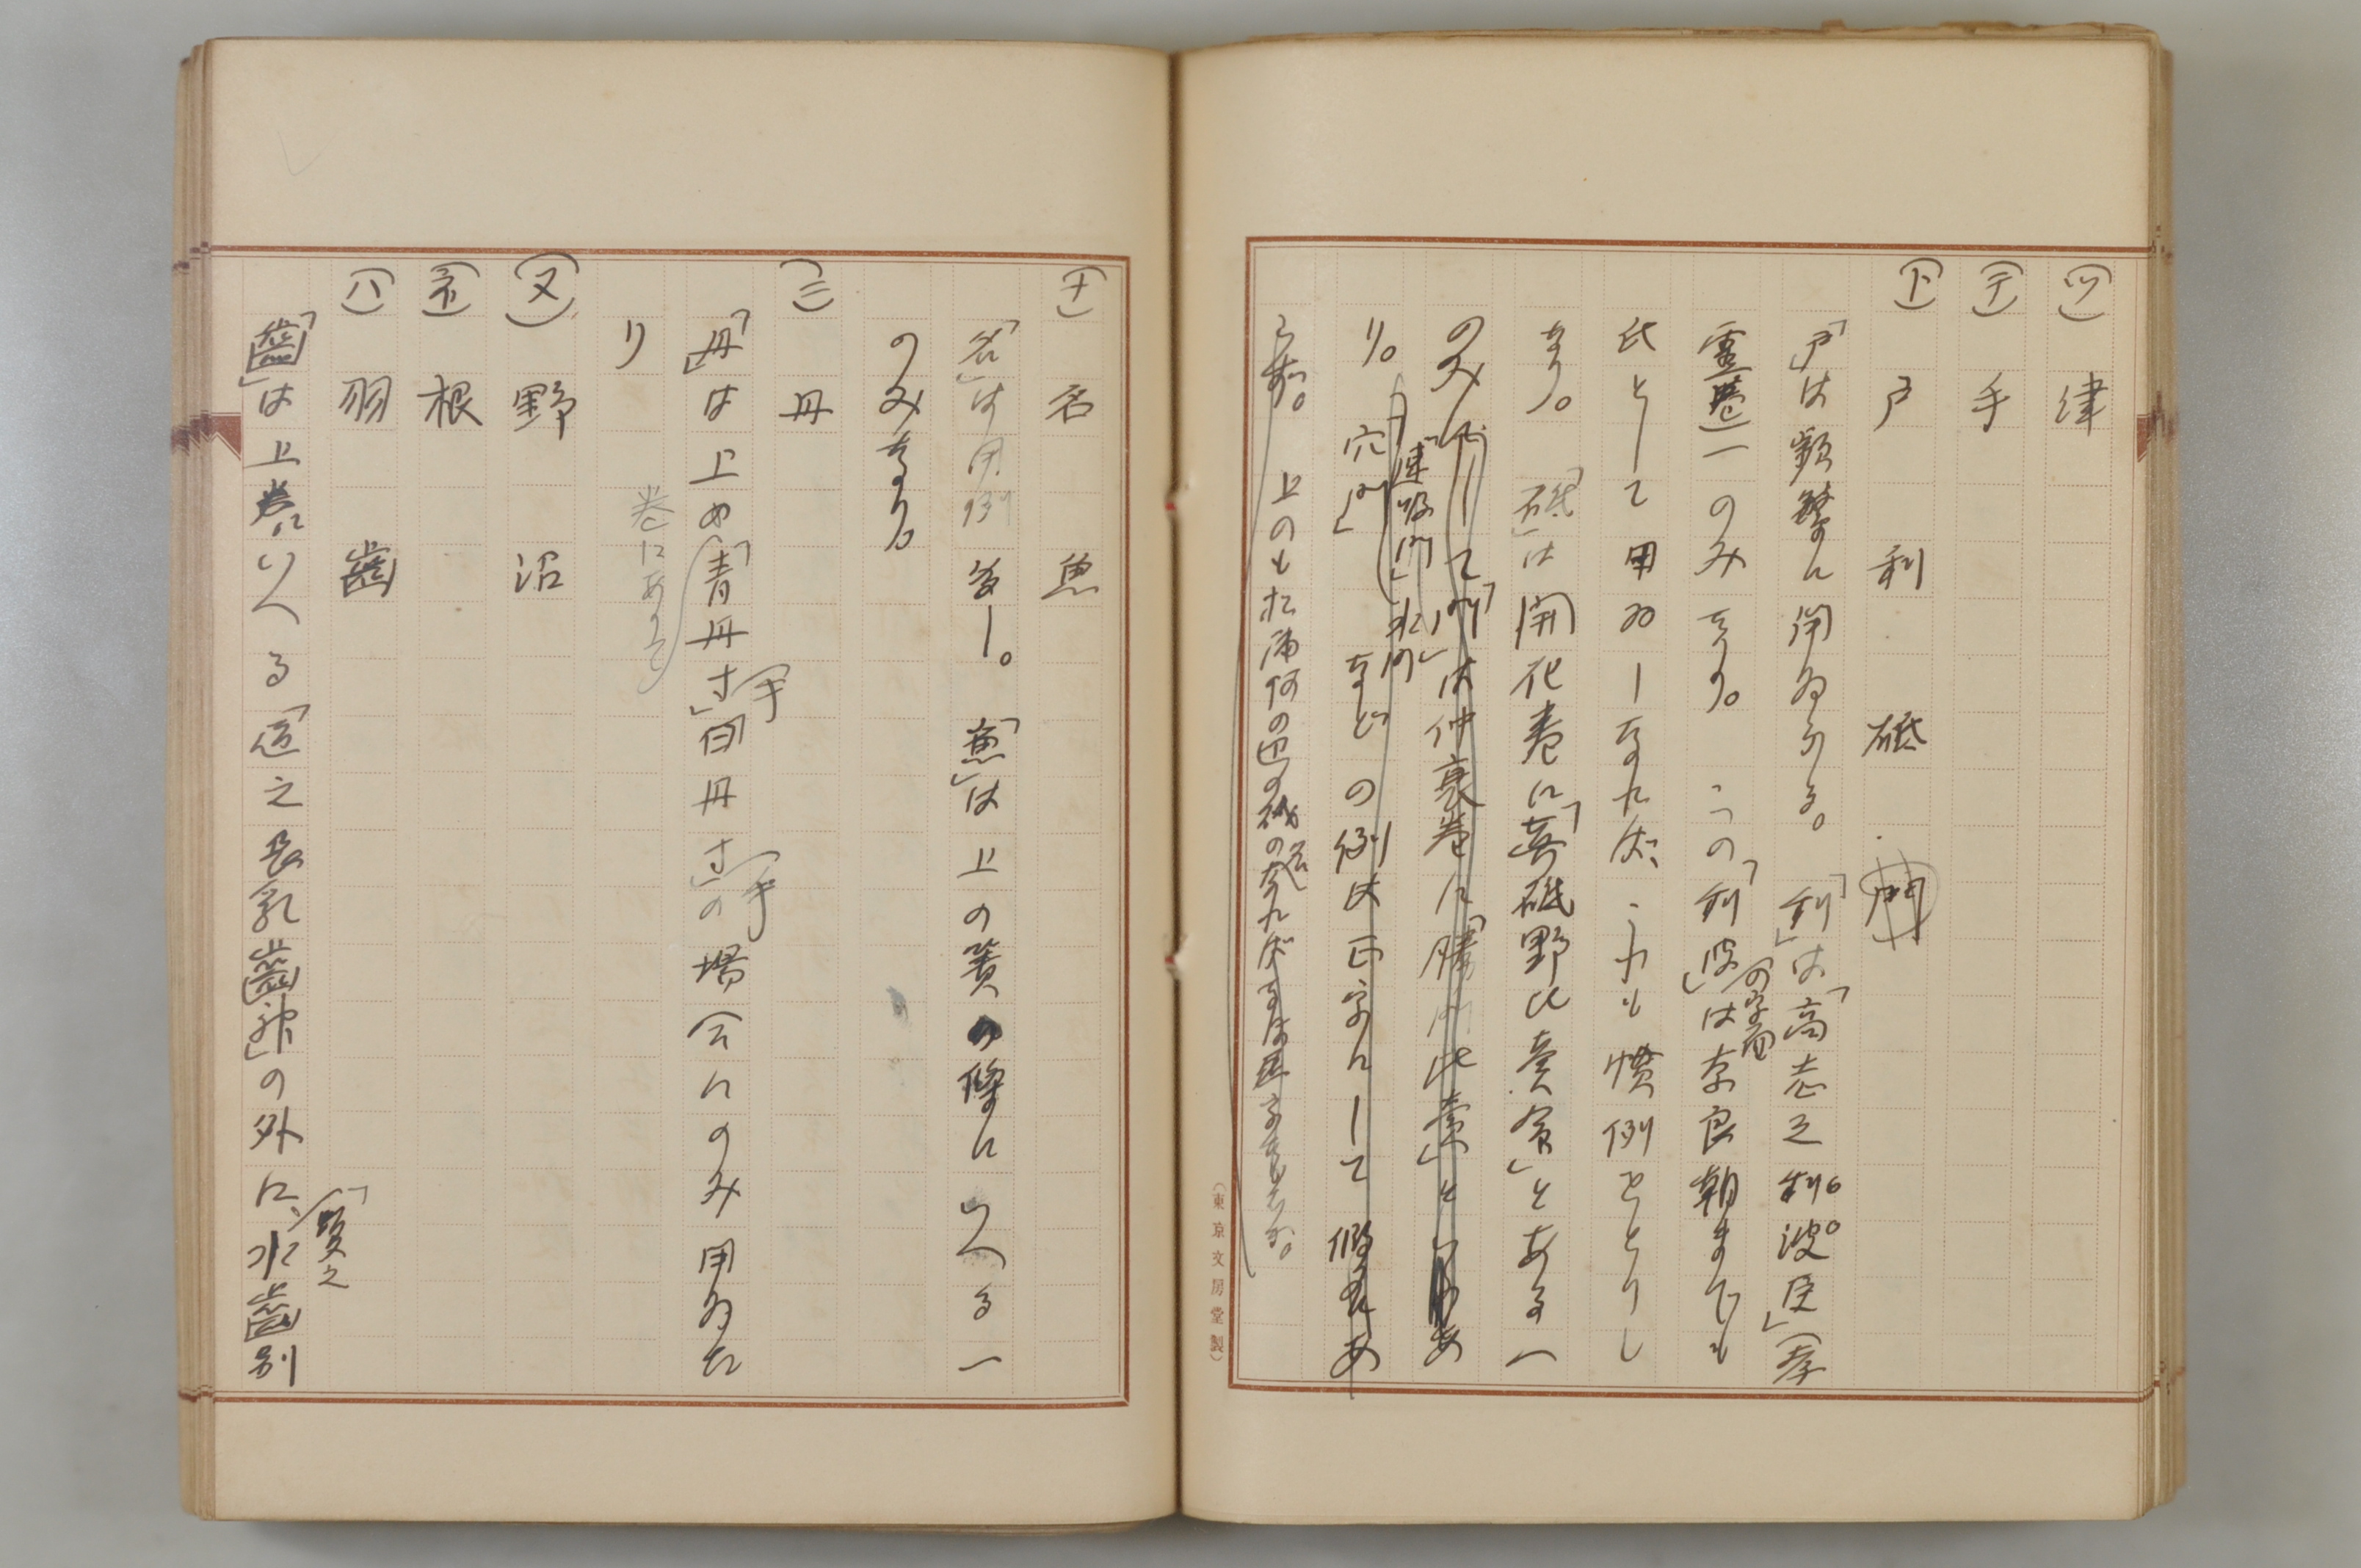 (ツ) 津
(テ) 手
(ト) 戸 利 砥 門
「戸」は頻繁に用ゐらる。「利」は「高志之利波臣」(孝
靈巻)一のみなり。この「利波」の字面は奈良朝までも
氏として用ゐしなれば、これも慣例をとりし
なり。「砥」は開化巻に「葛砥野比賣命」とある一
のみにして「門」は仲哀巻に「勝門比賣」とあ
「速吸門」水門
り。穴門」などの例は正字にして假名あ
らず。上のも松浦河の辺の磯の名なれば
(東京文房堂製)
(ナ) 名 魚
「名」は用例多し。「魚」は上の簀の條にいへる一
のみなり。
(ニ) 丹
「丹」は上め「青丹寸手」「白丹寸手」の場合にのみ用ゐた
巻にありて
り
(ヌ) 野 沼
(ネ) 根
(ハ) 羽 齒
「齒」は上巻にいへる「道之長乳齒神」の外に、「蝮之水齒別